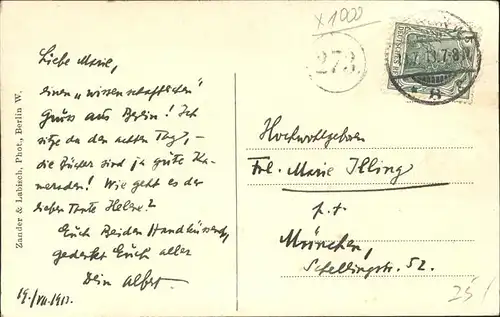 x 1000
273.
DEUTSCHES REICH
7-8N
Liebe Marie,
einen „wissenschaftlichen"
Gruss aus Berlin! Ich
sitze da den achten Tag, –
die Bücher sind ja gute Ka-
meraden! Wie geht es der
lieben Tante Helene?
Euch Beiden Handküssend,
gedenkt Euch aller
Dein Albert.
19./VII. 1913.
Zander & Labisch, Phot., Berlin W.
Hochwohlgeboren
Frl. Marie Illing
p. t.
München,
Schellingstr. 52.
25/